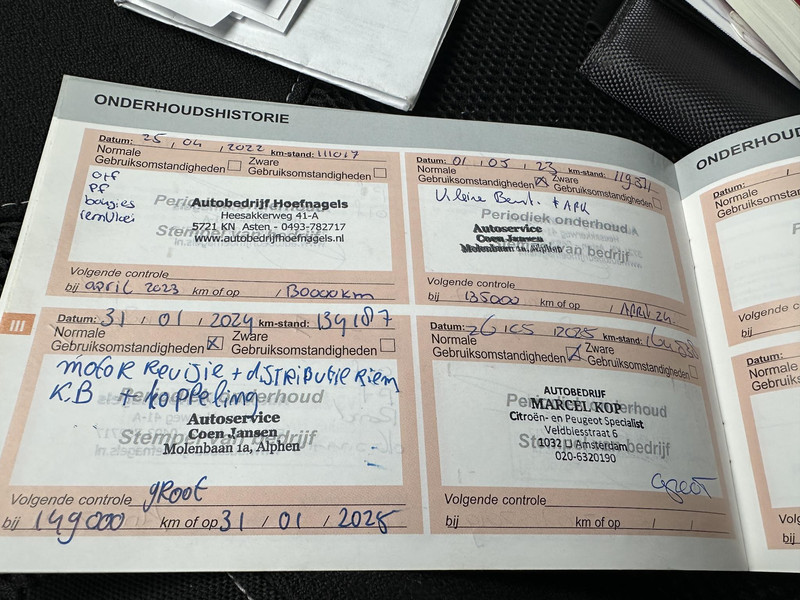 ONDERHOUDSHISTORIE
Datum: 25 / 04 / 2022 km-stand: 111017
Normale Gebruiksomstandigheden
Zware Gebruiksomstandigheden
off
pf
bougies
Periodiek onderhoud
Stempel van bedrijf
Autobedrijf Hoefnagels
Heesakkerweg 41-A
5721 KN Asten - 0493-782717
www.autobedrijfhoefnagels.nl
Volgende controle
bij april 2023 km of op / 130000km
Datum: 01 / 05 / 23 km-stand:
Normale Gebruiksomstandigheden
Zware Gebruiksomstandigheden
Kleine Beurt. + APK
Periodiek onderhoud
Stempel van bedrijf
Autoservice
Coen Jansen
Molenbaan 1a, Alphen
Volgende controle
bij 135000 km of op / APRIL 24.
III
Datum: 31 / 01 / 2024 km-stand: 134187
Normale Gebruiksomstandigheden
Zware Gebruiksomstandigheden
motor Revisie + distributie Riem
K.B + koppeling
Periodiek onderhoud
Stempel van bedrijf
Autoservice
Coen Jansen
Molenbaan 1a, Alphen
Volgende controle gRoot
bij 149000 km of op 31 / 01 / 2025
Datum: 26 / 05 / 2025 km-stand:
Normale Gebruiksomstandigheden
Zware Gebruiksomstandigheden
Periodiek onderhoud
Stempel van bedrijf
AUTOBEDRIJF
MARCEL KOP
Citroën- en Peugeot Specialist
Veldbiesstraat 6
1032 LJ Amsterdam
020-6320190
Groot
Volgende controle
bij km of op / /
ONDERHOUD
Datum: /
Normale
Gebruiks
Volgende c
bij
Datum:
Normale
Gebruik
Volg
bij